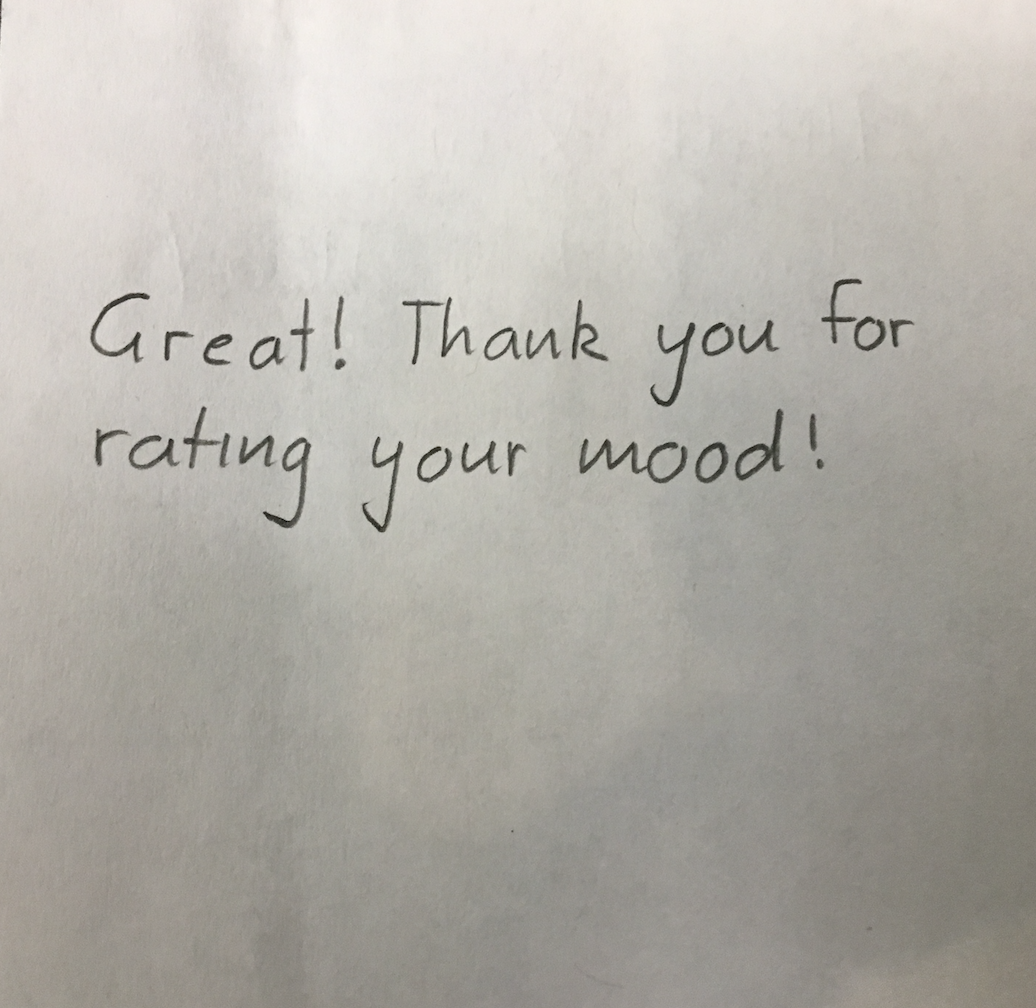 Great! Thank you for
rating your mood!